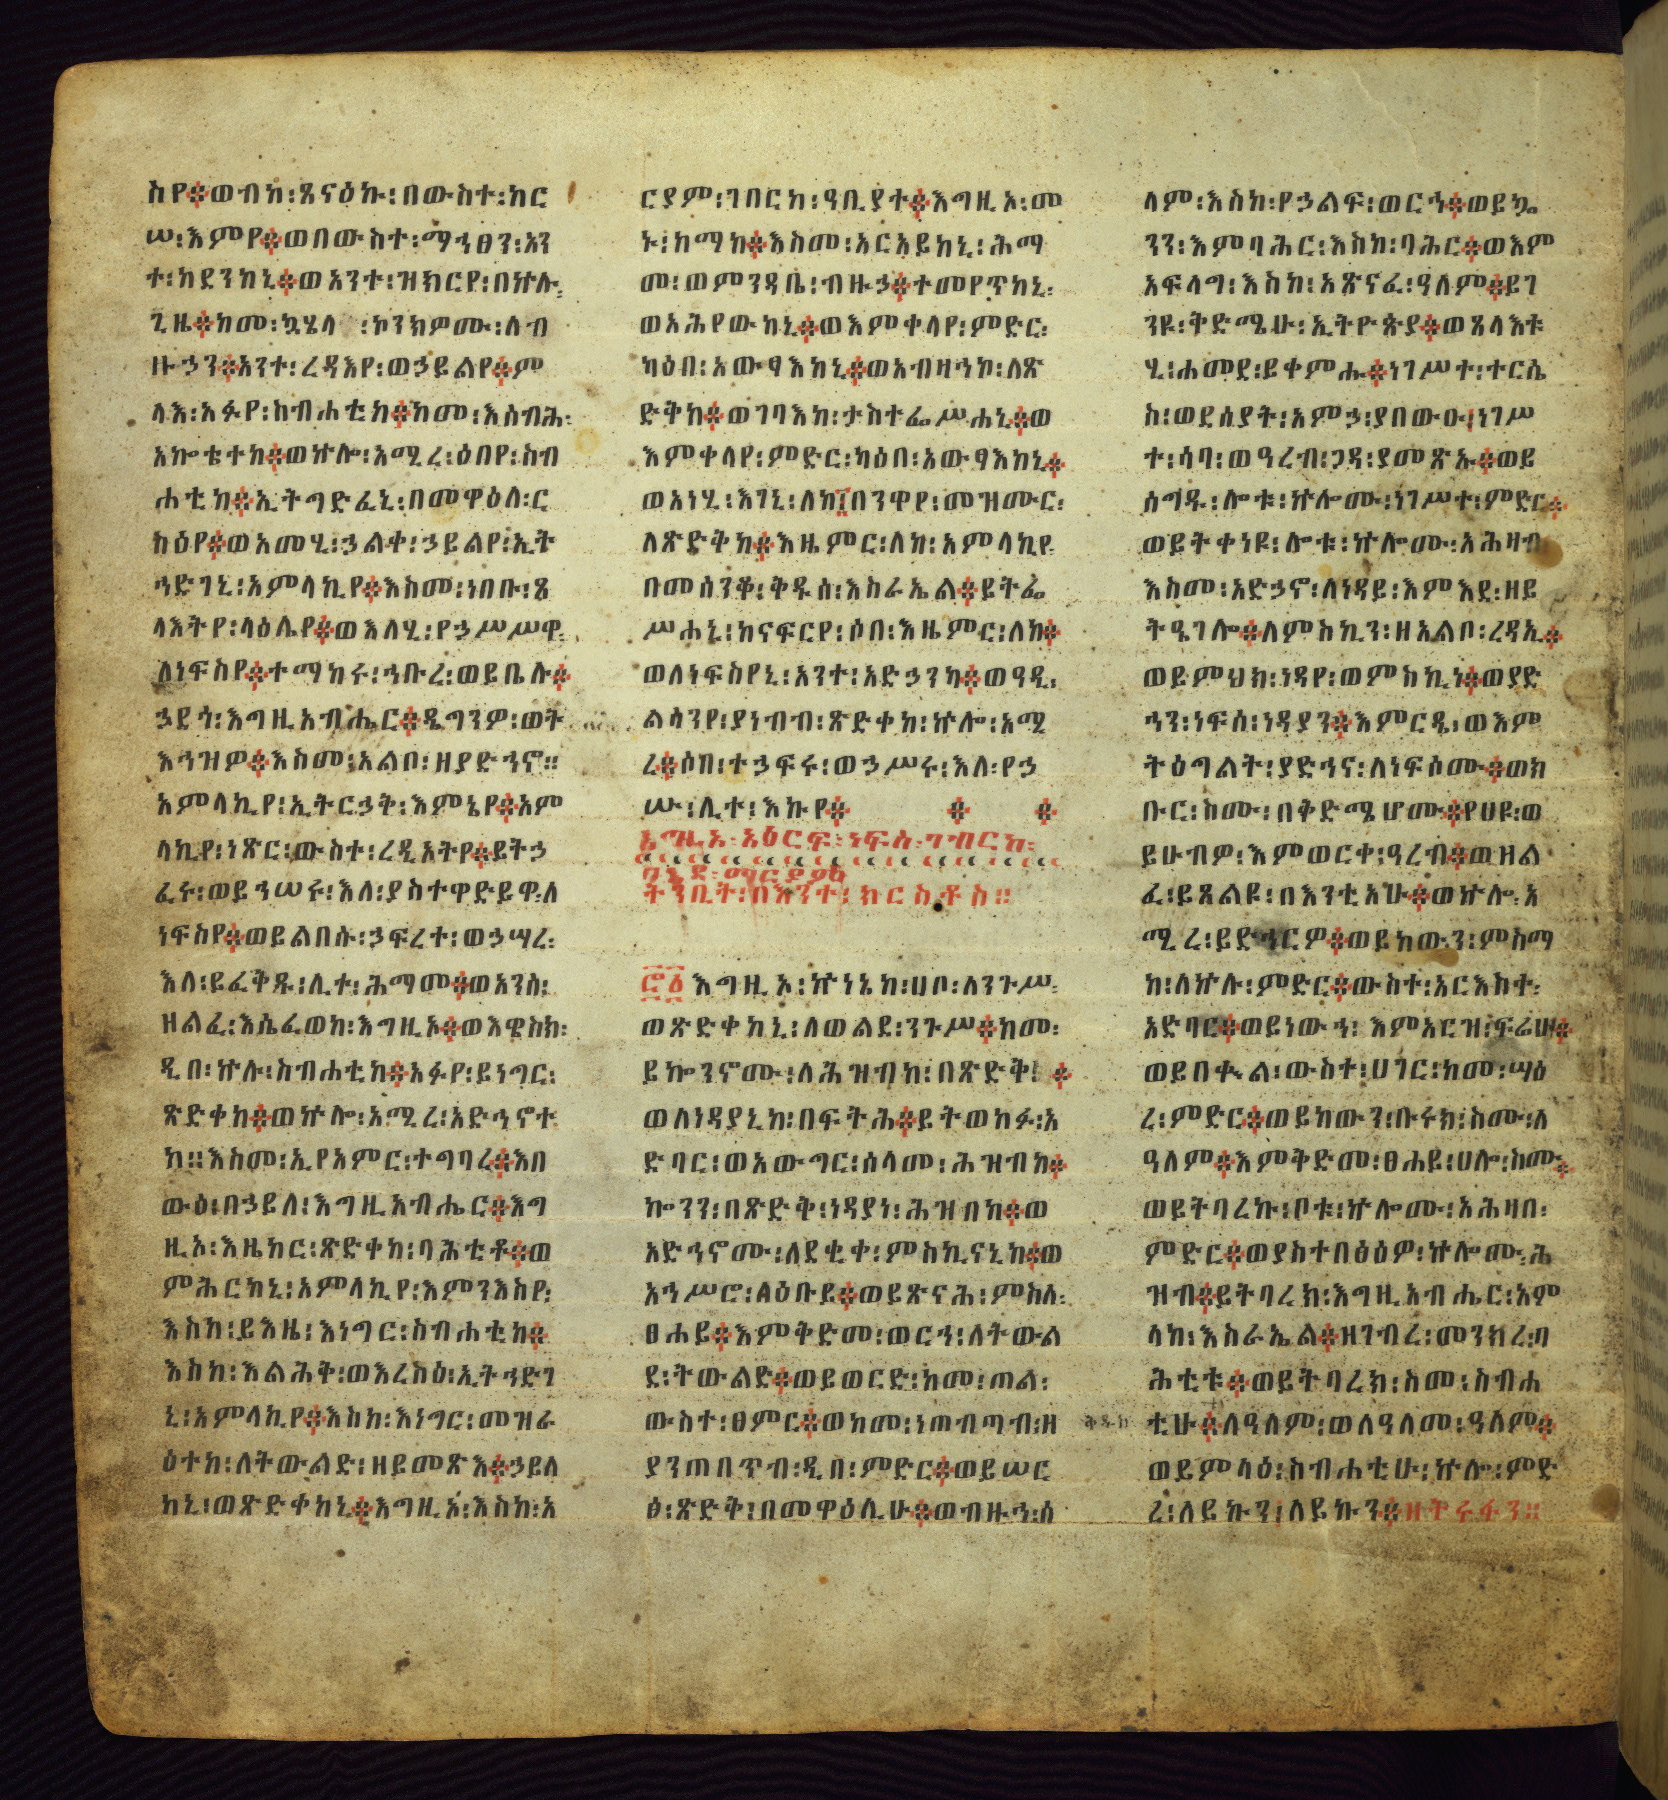 ስየ፨ወብከ፡ጸናዕኩ፡በውስተ፡ከር
ሠ፡እምየ፨ወበውስተ፡ማኅፀን፡አን
ተ፡ከደንከኒ፨ወአንተ፡ዝክርየ፡በኵሉ፡
ጊዜ፨ከመ፡ኳሄላ፡ኮንክዎሙ፡ለብ
ዙኃን፨አንተ፡ረዳእየ፡ወኃይልየ፨ም
ላእ፡አፉየ፡ስብሐቲከ፨ከመ፡እሰብሕ፡
አኰቴተከ፨ወኵሎ፡አሚረ፡ዕበየ፡ስብ
ሐቲከ፨ኢትግድፈኒ፡በመዋዕለ፡ር
ስዕየ፨ወአመሂ፡ኃልቀ፡ኃይልየ፡ኢት
ኅድገኒ፡አምላኪየ፨እስመ፡ነበቡ፡ጸ
ላእትየ፡ላዕሌየ፨ወእለሂ፡የኃሥሥዋ፡
ለነፍስየ፨ተማከሩ፡ኅቡረ፡ወይቤሉ፨
ኃደጎ፡እግዚአብሔር፨ዴግንዎ፡ወት
እኅዝዎ፨እስመ፡አልቦ፡ዘያድኅኖ።
አምላኪየ፡ኢትርኃቅ፡እምኔየ፨አም
ላኪየ፡ነጽር፡ውስተ፡ረዲአትየ፨ይትኃ
ፈሩ፡ወይኅሠሩ፡እለ፡ያስተዋድይዋ፡ለ
ነፍስየ፨ወይልበሱ፡ኃፍረተ፡ወኃሣረ፡
እለ፡ይፈቅዱ፡ሊተ፡ሕማመ፨ወአንሰ፡
ዘልፈ፡እሴፈወከ፡እግዚኦ፨ወእዌስክ፡
ዲበ፡ኵሉ፡ስብሐቲከ፨አፉየ፡ይነግር፡
ጽድቀከ፨ወኵሎ፡አሚረ፡አድኅኖተ
ከ።እስመ፡ኢየአምር፡ተግባረ፨እበ
ውዕ፡በኃይለ፡እግዚአብሔር፨እግ
ዚኦ፡እዜከር፡ጽድቀከ፡ባሕቲቶ፨ወ
ምሕርከኒ፡አምላኪየ፡እምንእስየ፡
እስከ፡ይእዜ፡እነግር፡ስብሐቲከ፨
እስከ፡እልሕቅ፡ወእረስዕ፡ኢትኅድገ
ኒ፡አምላኪየ፨እስከ፡እነግር፡መዝራ
ዕተከ፡ለትውልድ፡ዘይመጽእ፨ኃይለ
ከኒ፡ወጽድቀከኒ፨እግዚኦ፡እስከ፡አ
ርያም፡ገበርከ፡ዓቢያተ፨እግዚኦ፡መ
ኑ፡ከማከ፨እስመ፡አርአይከኒ፡ሕማ
መ፡ወምንዳቤ፡ብዙኃ፨ተመየጥከኒ፡
ወአሕየውከኒ፨ወእምቀላየ፡ምድር፡
ካዕበ፡አውፃእከኒ፨ወአብዛኅኮ፡ለጽ
ድቅከ፨ወገባእከ፡ታስተፌሥሐኒ፨ወ
እምቀላየ፡ምድር፡ካዕበ፡አውፃእከኒ፨
ወአነሂ፡እገኒ፡ለከ፡በንዋየ፡መዝሙር፡
ለጽድቅከ፨እዜምር፡ለከ፡አምላኪየ፡
በመሰንቆ፡ቅዱሰ፡እስራኤል፨ይትፌ
ሥሐኒ፡ከናፍርየ፡ሶበ፡እዜምር፡ለከ፨
ወለነፍስየኒ፡አንተ፡አድኃንካ፨ወዓዲ፡
ልሳንየ፡ያነብብ፡ጽድቀከ፡ኵሎ፡አሚ
ረ፨ሶበ፡ተኃፍሩ፡ወኃሥሩ፡እለ፡የኃ
ሡ፡ሊተ፡እኩየ፨ ፨ ፨
እግዚኦ፡አዕርፍ፡ነፍሰ፡ገብርከ፡
ትንቢት፡በእንተ፡ክርስቶስ።
፸፩ እግዚኦ፡ኵነኔከ፡ሀቦ፡ለንጉሥ፡
ወጽድቀከኒ፡ለወልደ፡ንጉሥ፨ከመ፡
ይኰንኖሙ፡ለሕዝብከ፡በጽድቅ፡ ፨
ወለነዳያኒከ፡በፍትሕ፨ይትወከፉ፡አ
ድባር፡ወአውግር፡ሰላመ፡ሕዝብከ፨
ኰንን፡በጽድቅ፡ነዳያነ፡ሕዝበከ፨ወ
አድኅኖሙ፡ለደቂቀ፡ምስኪናኒከ፨ወ
አኅሥሮ፡ለዕቡይ፨ወይጽናሕ፡ምስለ፡
ፀሐይ፨እምቅድመ፡ወርኅ፡ለትውል
ደ፡ትውልድ፨ወይወርድ፡ከመ፡ጠል፡
ውስተ፡ፀምር፨ወከመ፡ነጠብጣብ፡ዘ
ያንጠበጥብ፡ዲበ፡ምድር፨ወይሠር
ፅ፡ጽድቅ፡በመዋዕሊሁ፨ወብዙኅ፡ሰ
ላም፡እስከ፡የኃልፍ፡ወርኅ፨ወይኴ
ንን፡እምባሕር፡እስከ፡ባሕር፨ወእም
አፍላግ፡እስከ፡አጽናፈ፡ዓለም፨ይገ
ንዩ፡ቅድሜሁ፡ኢትዮጵያ፨ወጸላእቱ
ሂ፡ሐመደ፡ይቀምሑ፨ነገሥተ፡ተርሴ
ስ፡ወደሰያት፡አምኃ፡ያበውዑ፡ነገሥ
ተ፡ሳባ፡ወዓረብ፡ጋዳ፡ያመጽኡ፨ወይ
ሰግዱ፡ሎቱ፡ኵሎሙ፡ነገሥተ፡ምድር፨
ወይትቀነዩ፡ሎቱ፡ኵሎሙ፡አሕዛብ
እስመ፡አድኃኖ፡ለነዳይ፡እምእደ፡ዘይ
ትዔገሎ፨ለምስኪን፡ዘአልቦ፡ረዳኢ፨
ወይምህክ፡ነዳየ፡ወምስኪነ፨ወያድ
ኅን፡ነፍሰ፡ነዳያን፨እምርዴ፡ወእም
ትዕግልት፡ያድኅና፡ለነፍሶሙ፨ወክ
ቡር፡ስሙ፡በቅድሜሆሙ፨የሀዩ፡ወ
ይሁብዎ፡እምወርቀ፡ዓረብ፨ወዘል
ፈ፡ይጼልዩ፡በእንቲአሁ፨ወኵሎ፡አ
ሚረ፡ይድኅርዎ፨ወይከውን፡ምስማ
ከ፡ለኵሉ፡ምድር፨ውስተ፡አርእስተ፡
አድባር፨ወይነውኅ፡እምአርዝ፡ፍሬሁ፨
ወይበቍል፡ውስተ፡ሀገር፡ከመ፡ሣዕ
ረ፡ምድር፨ወይከውን፡ቡሩክ፡ስሙ፡ለ
ዓለም፨እምቅድመ፡ፀሐይ፡ሀሎ፡ስሙ፨
ወይትባረኩ፡ቦቱ፡ኵሎሙ፡አሕዛበ፡
ምድር፨ወያስተበፅዕዎ፡ኵሎሙ፡ሕ
ዝብ፨ይትባረክ፡እግዚአብሔር፡አም
ላከ፡እስራኤል፨ዘገብረ፡መንክረ፡ባ
ሕቲቱ፨ወይትባረክ፡ስመ፡ስብሐ
ቲሁ፨ለዓለም፡ወለዓለመ፡ዓለም፨
ወይምላዕ፡ስብሐቲሁ፡ኵሎ፡ምድ
ረ፡ለይኩን፡ለይኩን፨ዘትሩፋን።